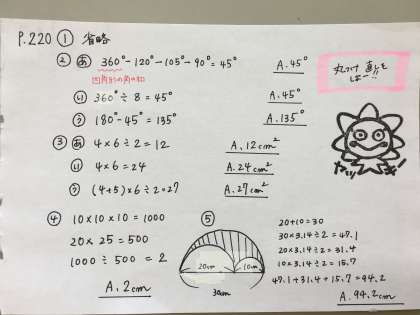 P.220 ① 省略
② あ 360°-120°-105°-90°=45° A.45°
四角形の角の和
い 360°÷8=45° A.45°
う 180°-45°=135° A.135°
③ あ 4×6÷2=12 A.12cm²
い 4×6=24 A.24cm²
う (4+5)×6÷2=27 A.27cm²
丸つけ 直しを
しよー!!
④ 10×10×10=1000
20×25=500
1000÷500=2
A.2cm
⑤
20cm 10cm
30cm
20+10=30
30×3.14÷2=47.1
20×3.14÷2=31.4
10×3.14÷2=15.7
47.1+31.4+15.7=94.2
A.94.2cm